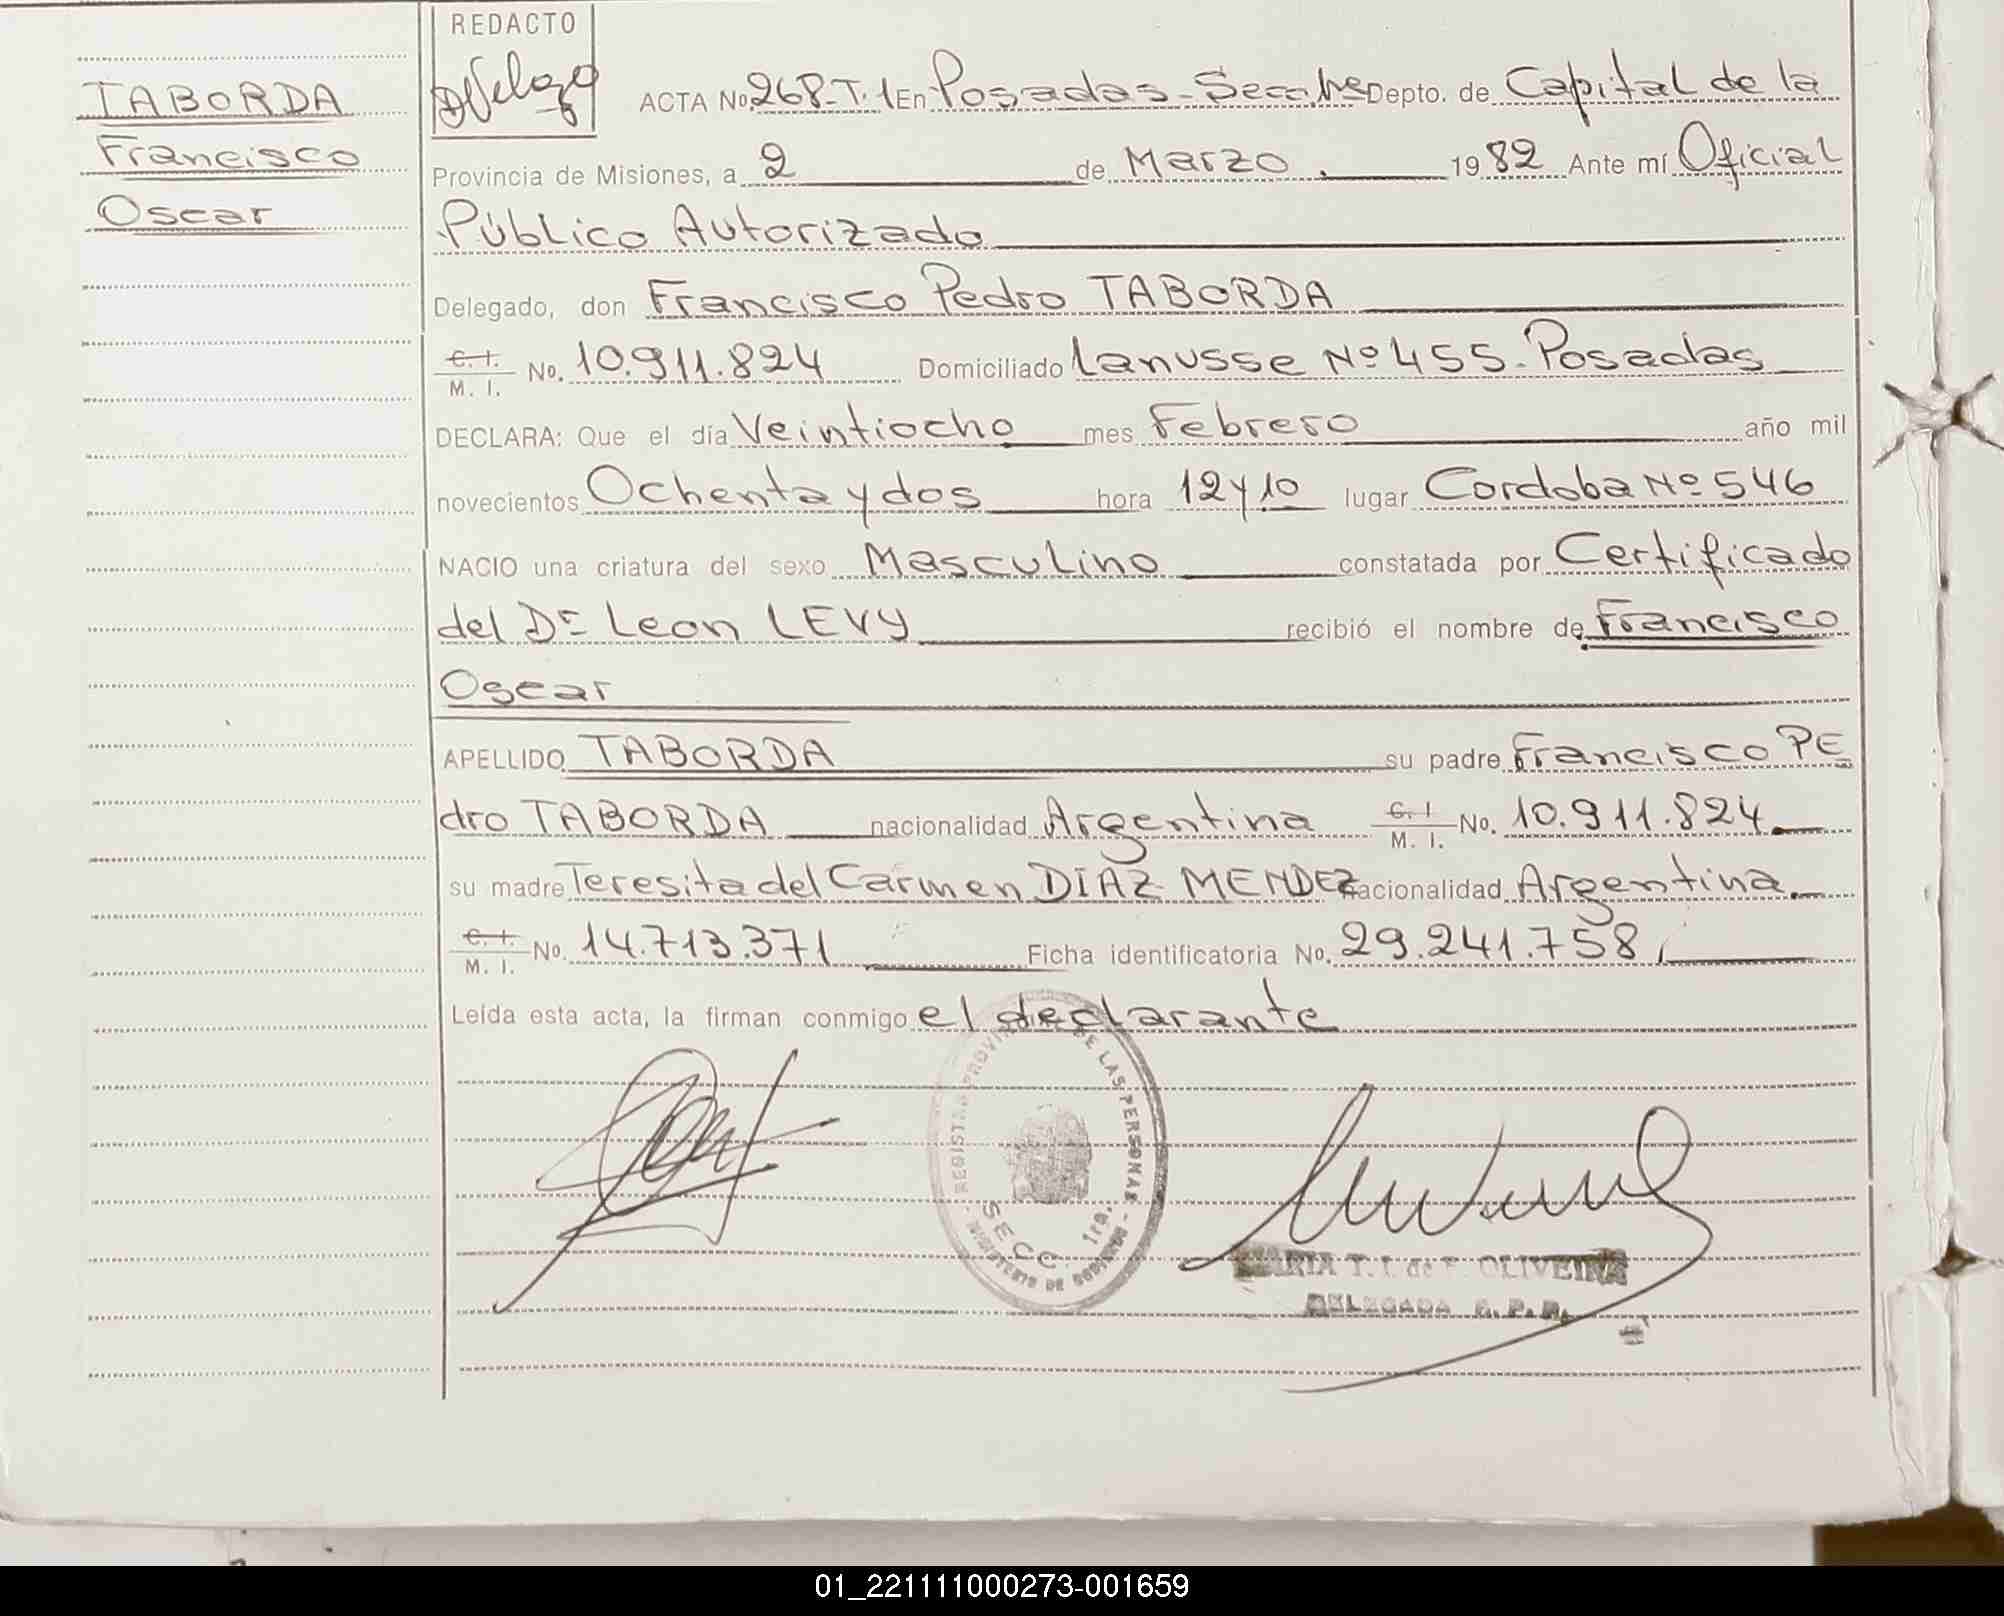 REDACTO
TABORDA
Francisco
Oscar
ACTA No. 268-T.1 En Posadas - Secc. 1ra Depto. de Capital de la
Provincia de Misiones, a 2 de Marzo 1982 Ante mí Oficial
Público Autorizado
Delegado, don Francisco Pedro TABORDA
C. I.
M. I. No. 10.911.824 Domiciliado Lanusse Nº 455. Posadas
DECLARA: Que el día Veintiocho mes Febrero año mil
novecientos Ochenta y dos hora 12 y 10 lugar Cordoba Nº 546
NACIO una criatura del sexo Masculino constatada por Certificado
del Dr Leon LEVY recibió el nombre de Francisco
Oscar
APELLIDO TABORDA su padre Francisco PE
dro TABORDA nacionalidad Argentina C. I. M. I. No. 10.911.824
su madre Teresita del Carmen DIAZ MENDEZ nacionalidad Argentina.
C. I.
M. I. No. 14.713.371 Ficha identificatoria No. 29.241.758
Leída esta acta, la firman conmigo el declarante
REGISTRO PROVINCIAL DE LAS PERSONAS
SECC. 1ra.
MINISTERIO DE GOBIERNO
MARIA T. I. de F. OLIVEIRA
DELEGADA R. P. P.
01_221111000273-001659